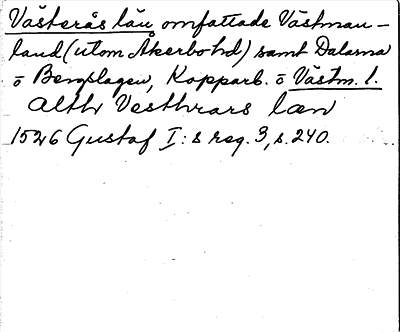 Västerås län omfattade Västman-
land (utom Åkerbo hd) samt Dalarna
o Bergslagen, Kopparb. o Västm. l.
allth Vesthrars læn
1526 Gustaf I:s reg. 3, s. 240.